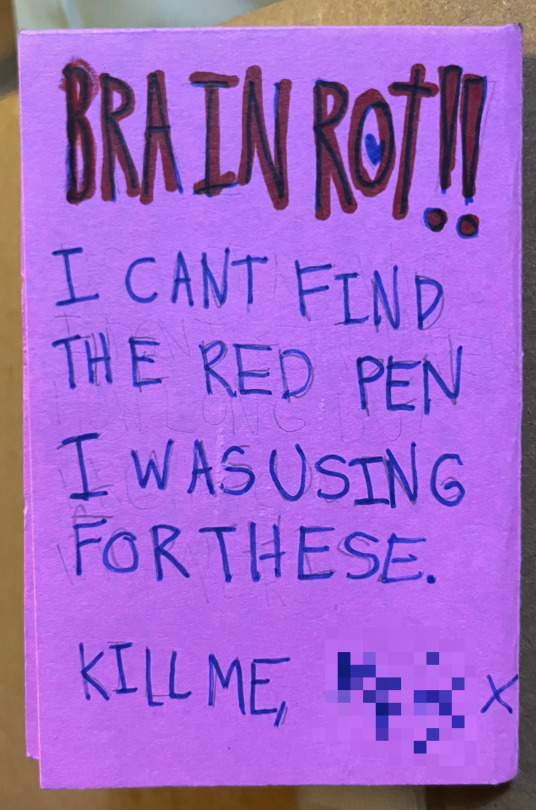 BRAIN ROT!!
I CANT FIND
THE RED PEN
I WAS USING
FOR THESE.
KILL ME,
X